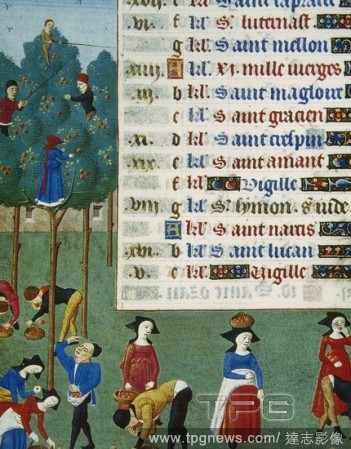 kl' Saint caprasi
vi. f kl' S. lutenast
g kl' Saint mellon
xiiii A kl' xi. mille vierges
iii b kl' Saint magloire
c kl' Saint gracien
xi. d kl' Saint crespin
xix e kl' Saint amant
f kl' Vigille
viii g kl' S. symon. s. iude
A kl' Saint narcis
xvi. b kl' Saint lucan
v. c kl' Vigille
TPG
www.tpgnews.com/ 達志影像